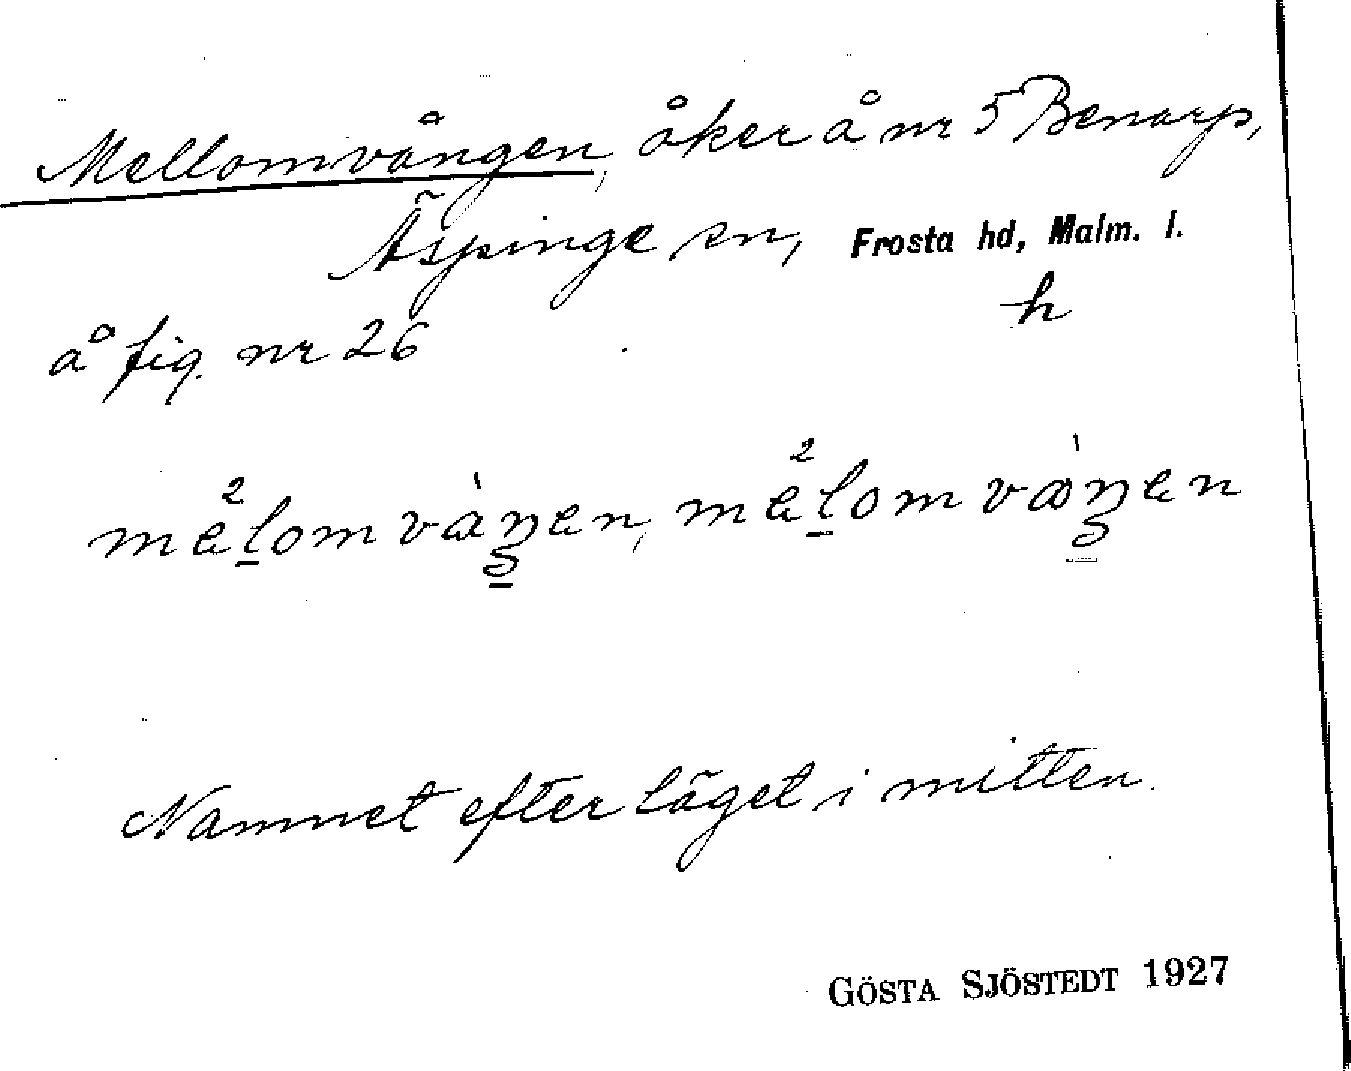 Mellomvången, åker å nr 5 Benarp,
Äspinge sn, Frosta hd, Malm. l.
h
å fig. nr 26
Namnet efter läget i mitten.
GÖSTA SJÖSTEDT 1927